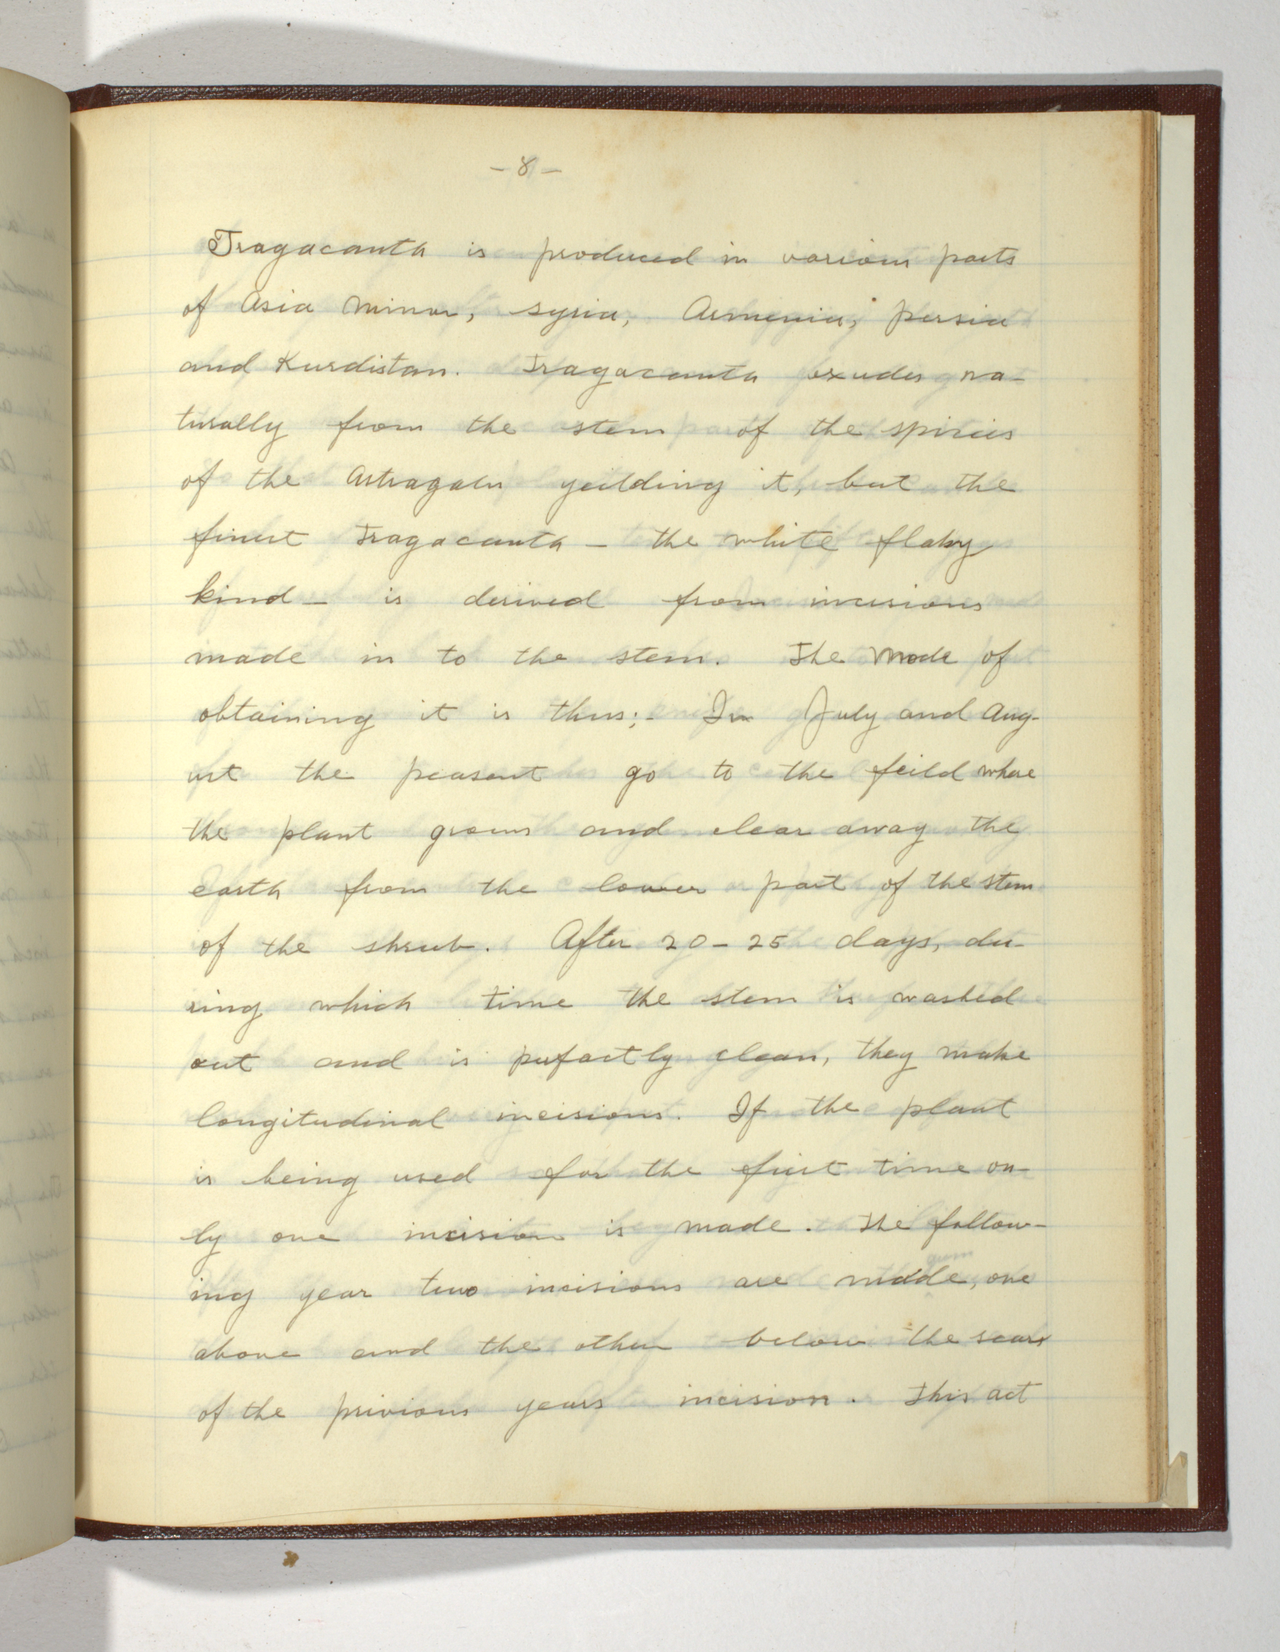 -8-
Tragacanta is produced in various parts
of Asia Minor, Syria, Armenia, Persia
and Kurdistan. Tragacanta exudes na-
turally from the stem of the spicies
of the Astragalus yeilding it, but the
finest Tragacanta - the white flaky
kind - is derived from incisions
made in to the stem. The mode of
obtaining it is thus:- In July and Aug-
ust the peasant go to the feild where
the plant grows and clear away the
earth from the lower part of the stem
of the shrub. After 20-25 days, du-
ring which time the stem is washed
out and is pufactly clean, they make
longitudinal incisions. If the plant
is being used for the first time on-
ly one incision is made. The follow-
ing year two incisions are made, one
above and the other below the scars
of the privious years incision. This act